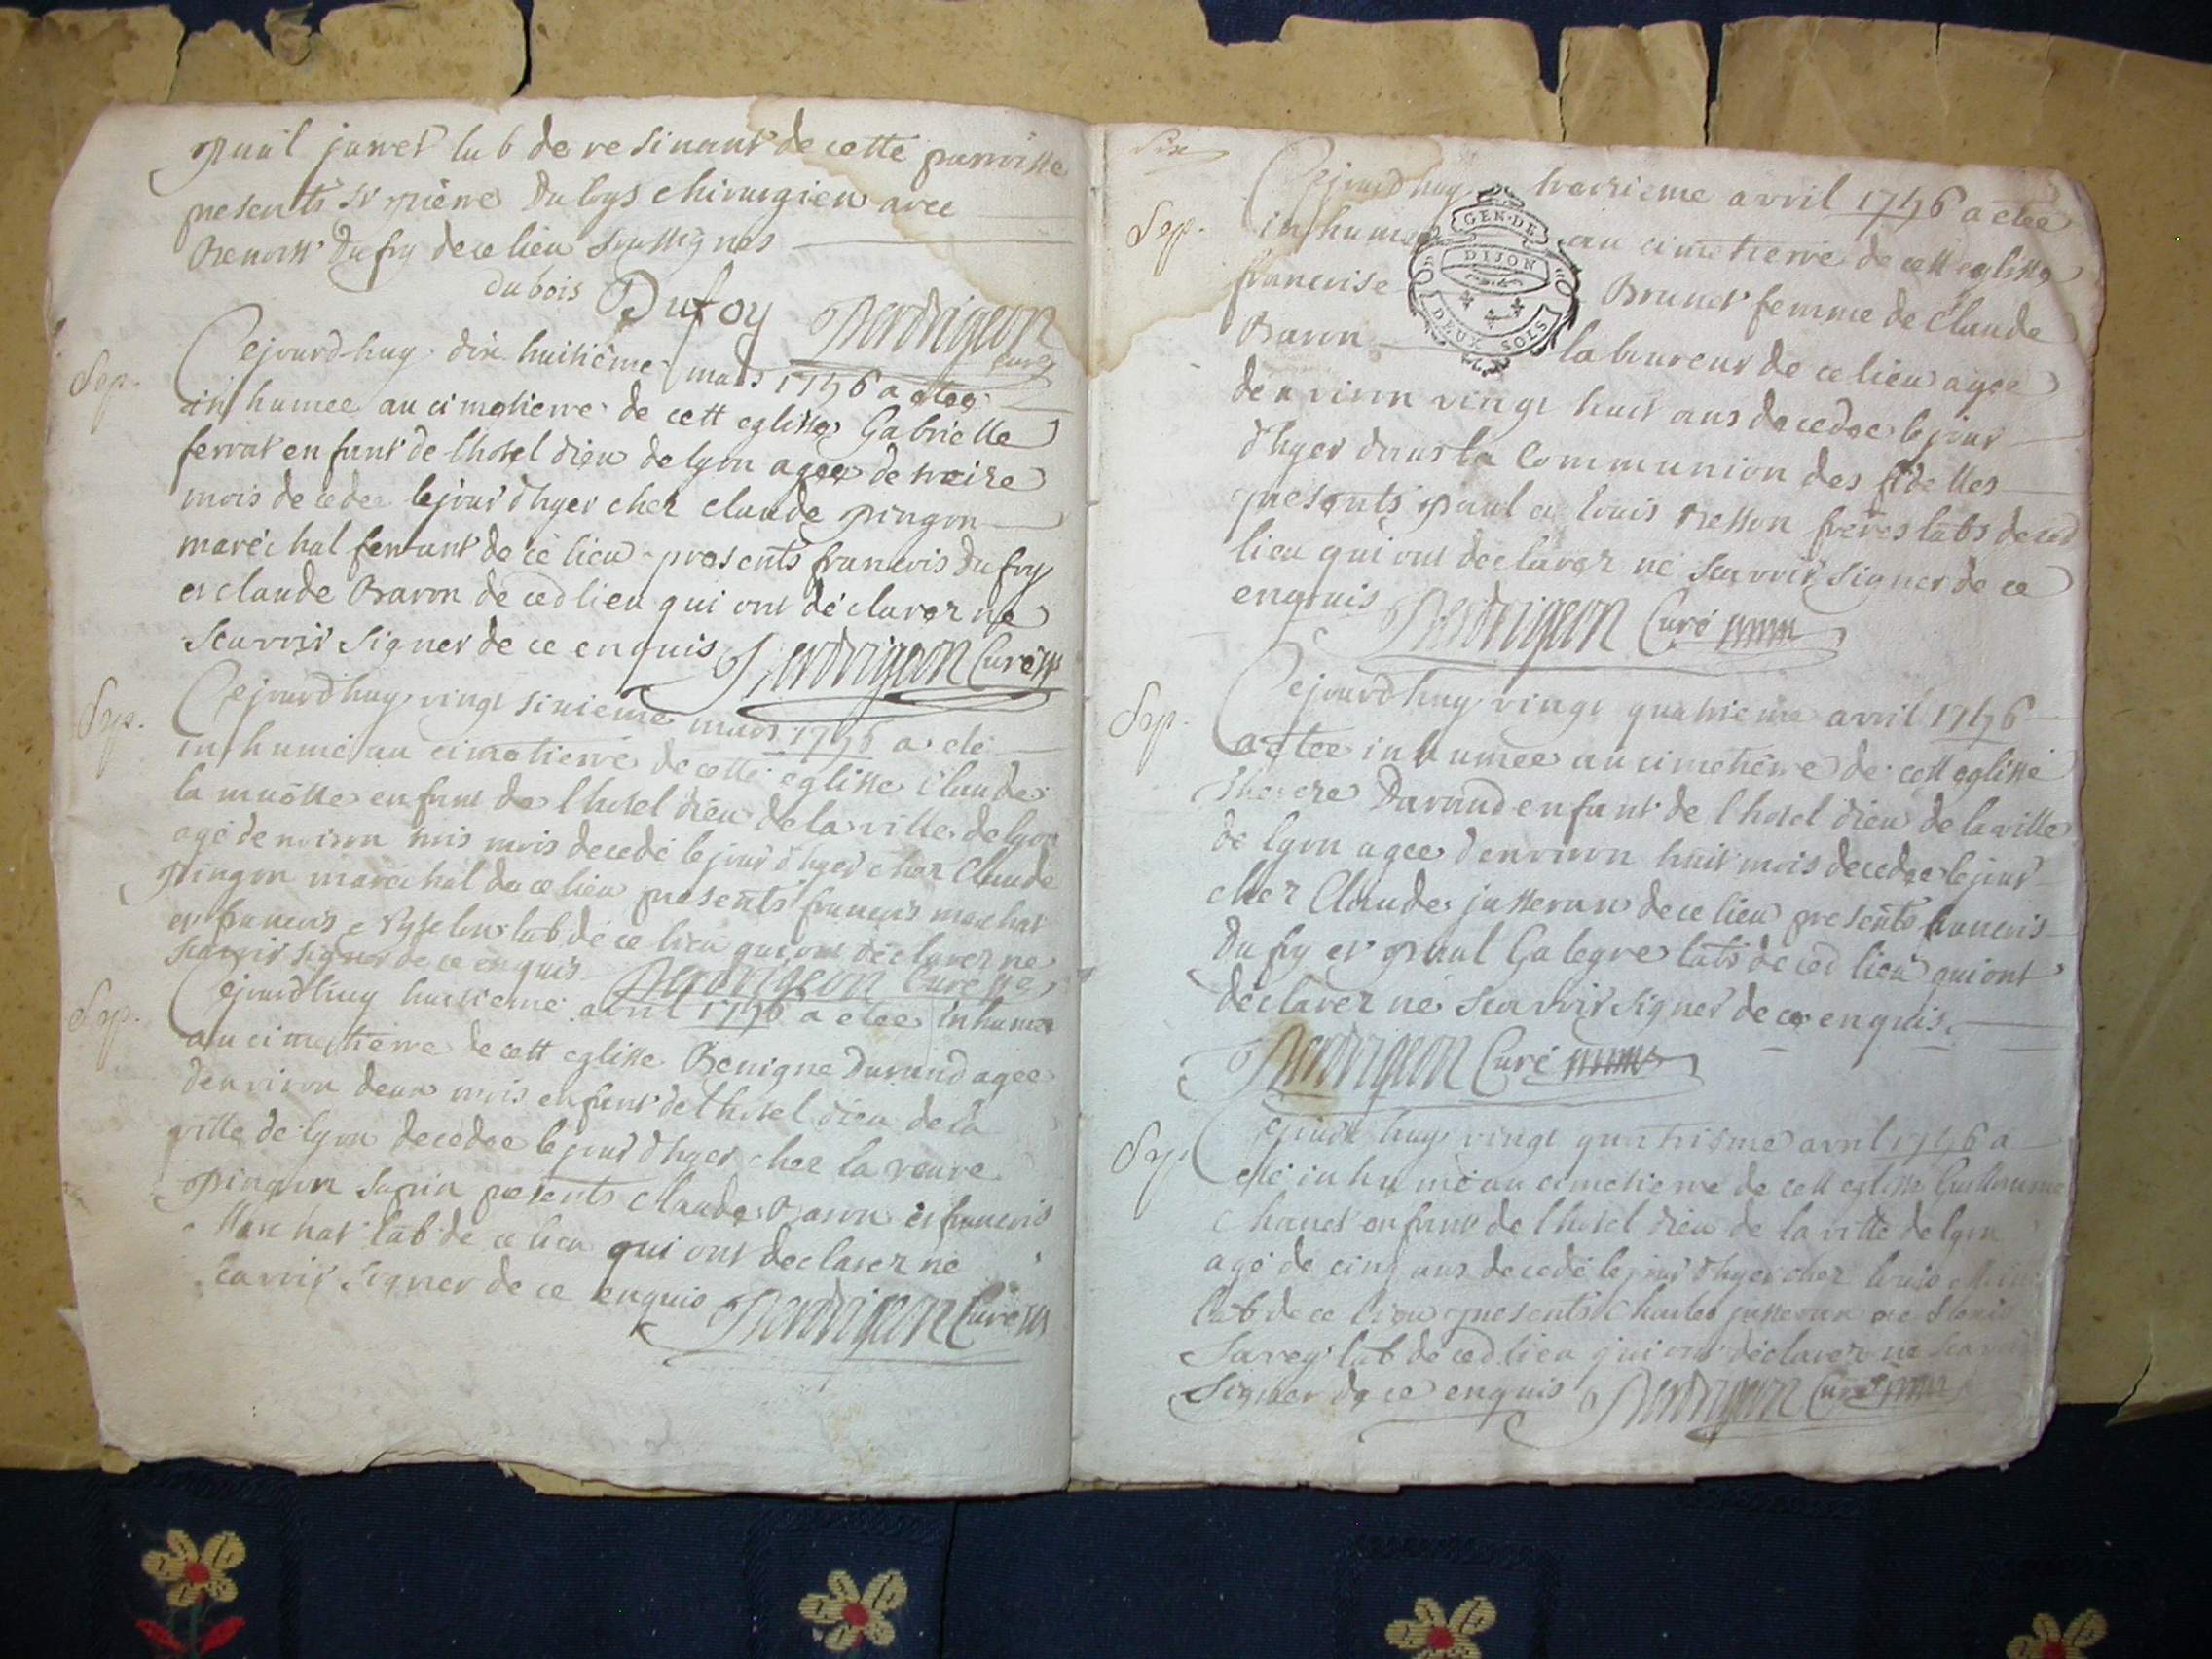 paul janet lab de resinant de cette parroisse
presents sr pierre Duboys chirurgien avec
Benoist Dufoy de ce lieu soussignes
dubois Dufoy Perdrigeon
curé
Sep. Cejourdhuy dix huitième mars 1746 a etee
inhumee au cimetierre de cett eglisse Gabrielle
ferrat enfant de lhotel dieu de lyon agee de treize
mois decedee le jour dhyer chez claude pingon
maréchal ferrant de ce lieu presents francois dufoy
et claude Baron de ced lieu qui ont déclarez ne
scavoir signer de ce enquis Perdrigeon Curé
Sep. Cejourdhuy vingt sixieme mars 1746 a eté
inhumé au cimetierre de cette eglisse claude
la enfant de lhotel dieu de la ville de lyon
agé denviron trois mois decedé le jour dhyer chez Claude
pingon maréchal de ce lieu presents francois marchat
et francois lab de ce lieu qui ont déclarez ne
scavoir signer de ce enquis Perdrigeon Curé
Sep. Cejourdhuy huitieme avril 1746 a etee inhumee
au cimetierre de cett eglisse Benigne Durand agee
denviron deux mois enfant de lhotel dieu de la
ville de lyon decedee le jour dhyer chez la veuve
pingon presents Claude Baron et francois
Marchat lab de ce lieu qui ont declarez ne
scavoir signer de ce enquis Perdrigeon Curé
Six
Cejourdhuy treizieme avril 1746 a etee
Sep. inhumee au cimetierre de cett eglisse
francoise Brunet femme de Claude
Baron laboureur de ce lieu agee
denviron vingt huit ans decedee le jour
dhyer dans la Communion des fidelles
presents paul et louis frères labs de ced
lieu qui ont declarez ne scavoir signer de ce
enquis Perdrigeon Curé
GEN. DE
DIJON
DEUX SOLS
Sep. Cejourdhuy vingt quatrieme avril 1746
a etee inhumee au cimetierre de cett eglisse
Therese Durand enfant de lhotel dieu de la ville
de lyon agee denviron huit mois decedee le jour
chez Claude jusseran de ce lieu presents francois
Dufoy et paul Galegre labs de ced lieu qui ont
déclarez ne scavoir signer de ce enquis.
Perdrigeon Curé
Sep. Cejourdhuy vingt quatrieme avril 1746 a
eté inhumé au cimetierre de cett eglisse Guillaume
Chanet enfant de lhotel dieu de la ville de lyon
agé de cinq ans decedé le jour dhyer chez louis
lab de ce lieu presents Charles jusseran et
lab de ced lieu qui ont déclarez ne scavoir
signer de ce enquis Perdrigeon Curé